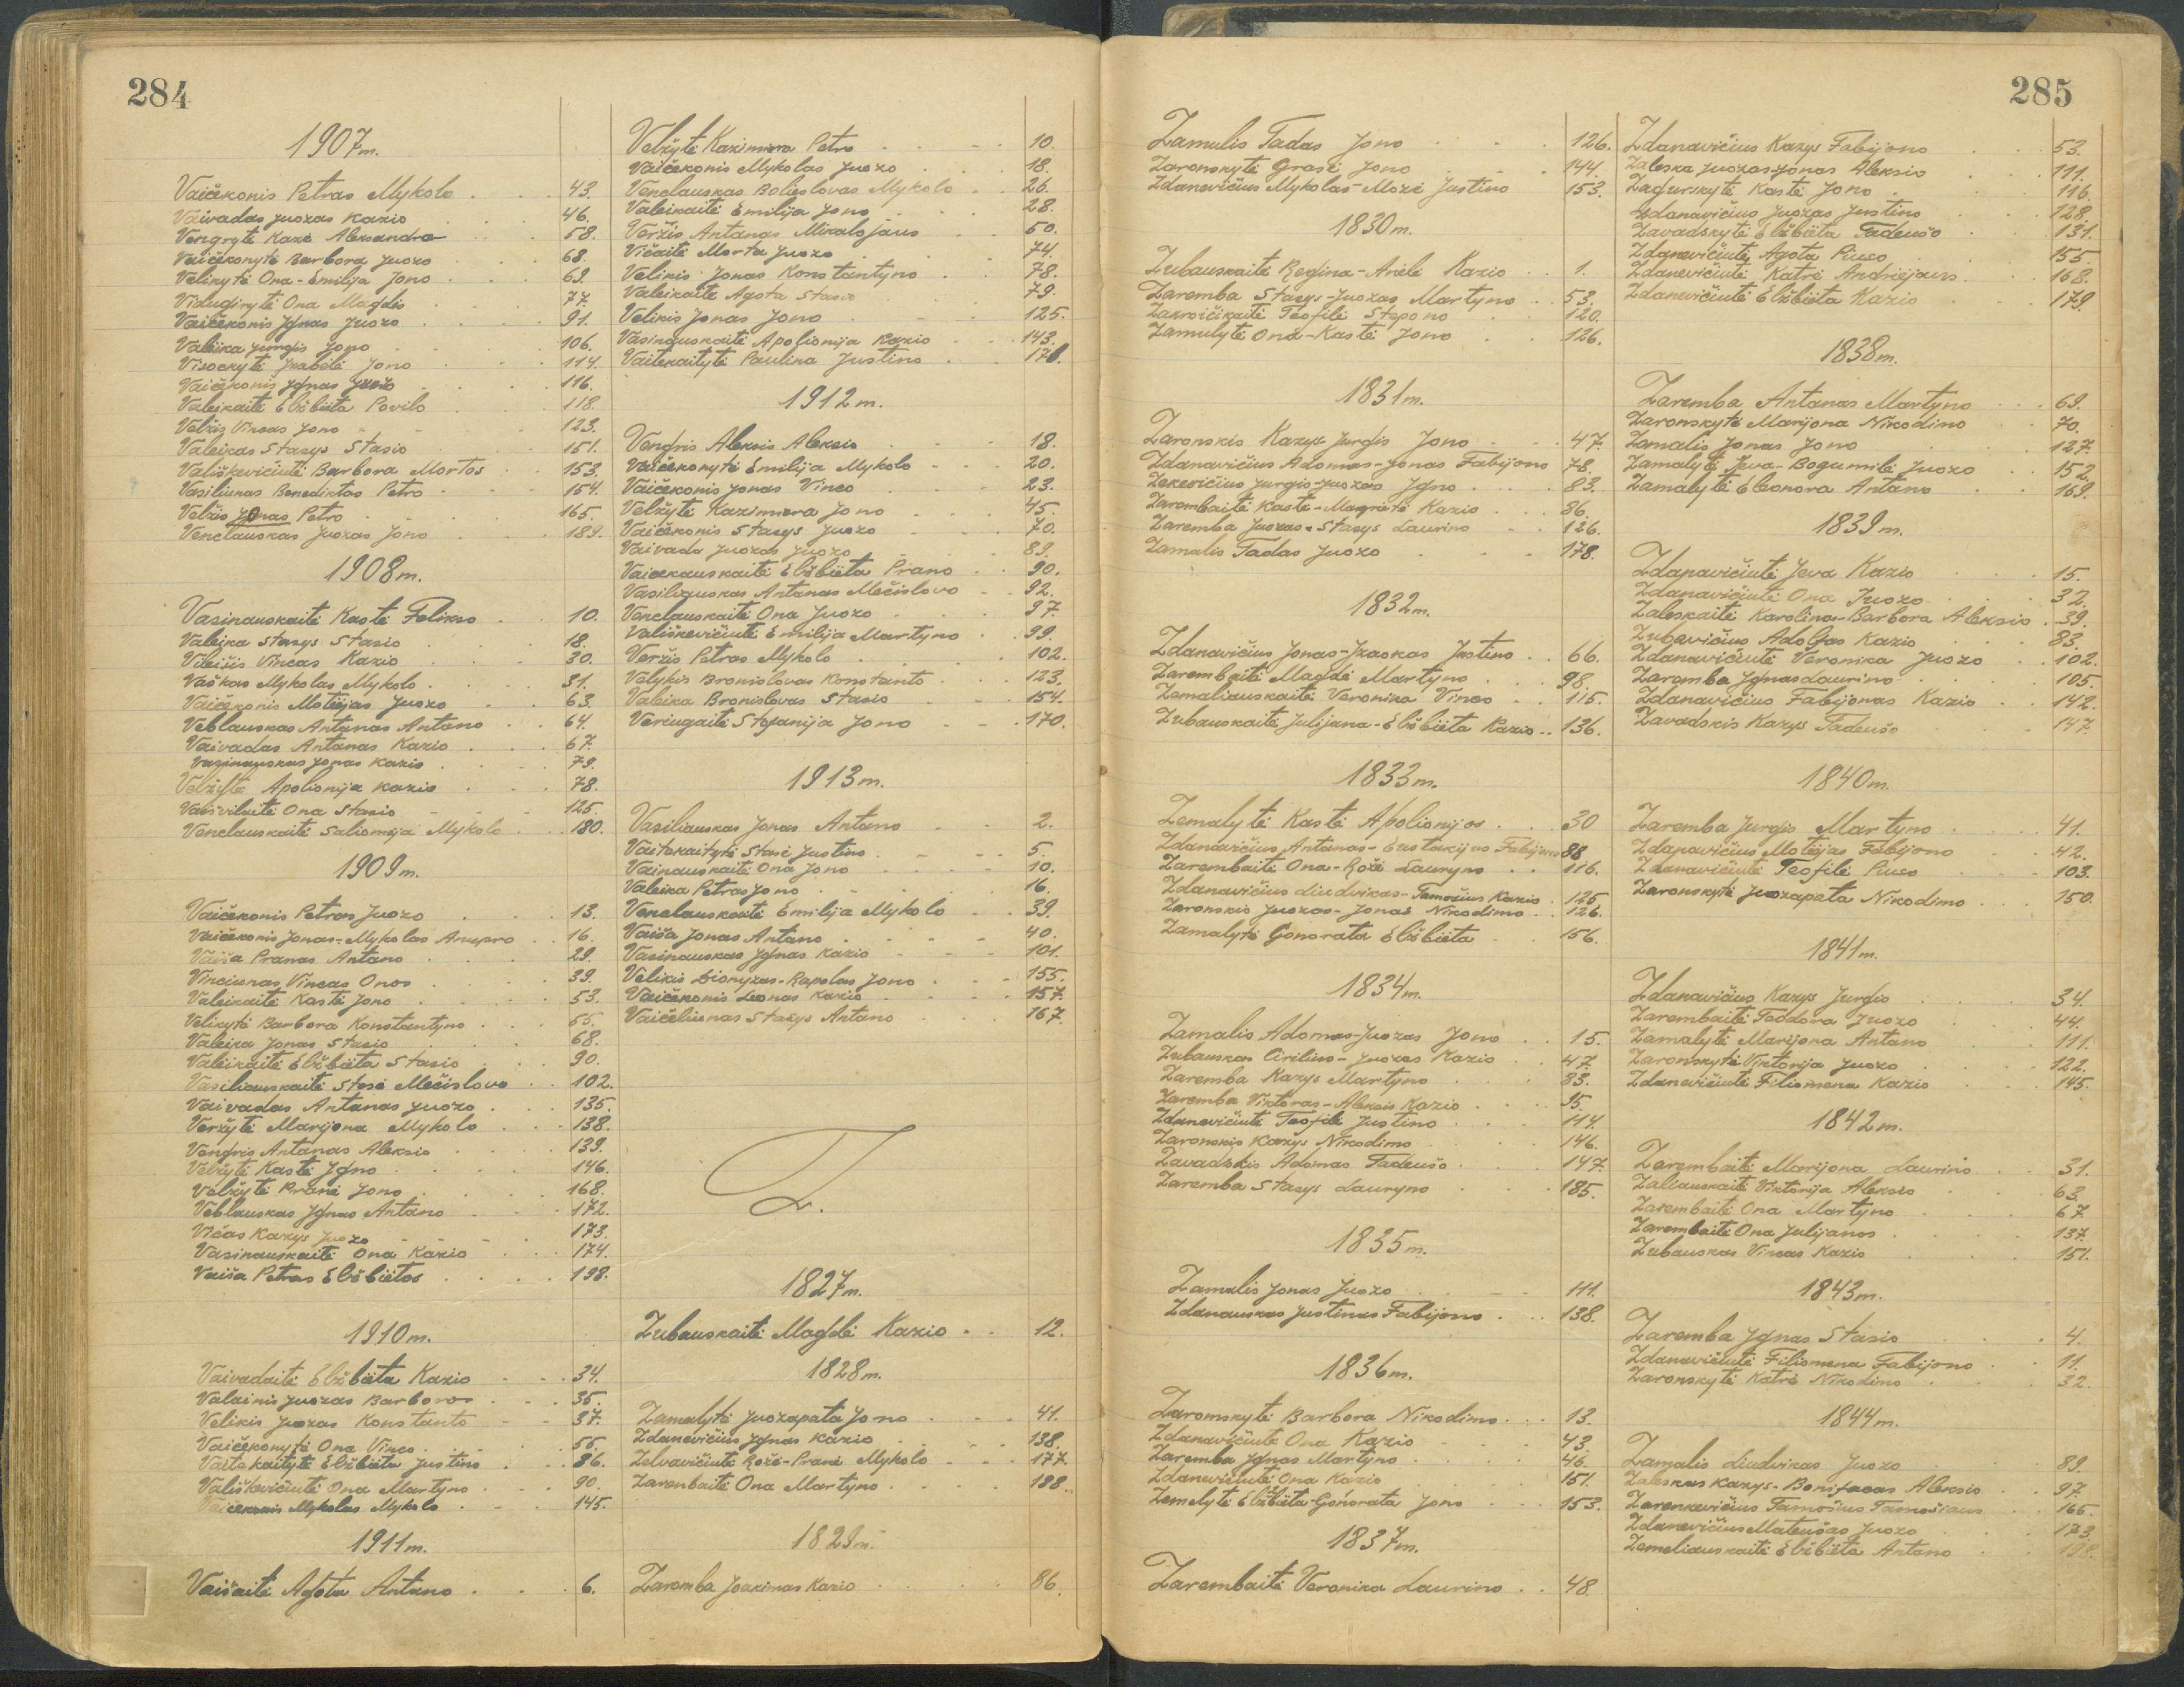 284
1907m.
Vaičekonis Petras Mykolo 43.
Vaivadas Juozas Kazio 46.
Vengrytė Kazė Aleksandro 58.
Vaičekonytė Barbora Juozo 68.
Velikytė Ona-Emilija Jono 69.
Vidugirytė Ona Magdės 77.
Vaičekonis Ignas Juozo 91.
Valeika Jurgis Jono 106.
Visockytė Izabelė Jono 114.
Vaičekonis Ignas Juozo 116.
Valeikaitė Elžbieta Povilo 118.
Velžis Vincas Jono 123.
Valeikas Stasys Stasio 151.
Vališkevičiutė Barbora Mortos 153.
Vasiliunas Benediktas Petro 154.
Velžis Jonas Petro 165.
Venclauskas Juozas Jono 189.
1908m.
Vasinauskaitė Kastė Felikso 10.
Valeika Stasys Stasio 18.
Vileišis Vincas Kazio 30.
Vaškas Mykolas Mykolo 31.
Vaičekonis Motiejas Juozo 63.
Veblauskas Antanas Antano 64.
Vaivadas Antanas Kazio 67.
Vasinauskas Jonas Kazio 79.
Velžytė Apolionija Kazio 78.
Vaišvilaitė Ona Stasio 125.
Venclauskaitė Saliomėja Mykolo 180.
1909m.
Vaičekonis Petras Juozo 13.
Vaičekonis Jonas-Mykolas Anupro 16.
Vaiša Pranas Antano 29.
Vinciunas Vincas Onos 39.
Valeikaitė Kastė Jono 53.
Velikytė Barbora Konstantyno 55.
Valeika Jonas Stasio 68.
Valeikaitė Elžbieta Stasio 90.
Vasiliauskaitė Stasė Mečislovo 102.
Vaivadas Antanas Juozo 135.
Veržytė Marijona Mykolo 138.
Vengris Antanas Aleksio 139.
Velžytė Kastė Igno 146.
Velžytė Pranė Jono 168.
Veblauskas Ignas Antano 172.
Vičas Kazys Juozo 173.
Vasinauskaitė Ona Kazio 174.
Vaiša Petras Elžbietos 198.
1910m.
Vaivadaitė Elžbieta Kazio 34.
Valainis Juozas Barboros 35.
Velikis Juozas Konstanto 37.
Vaičekonytė Ona Vinco 55.
Vaitekaitytė Elžbieta Justino 86.
Vališkevičiutė Ona Martyno 90.
Vaičekonis Mykolas Mykolo 145.
1911m.
Vaišaitė Agota Antano 6.
Velžytė Kazimiera Petro 10.
Vaičekonis Mykolas Juozo 18.
Venclauskas Bolieslovas Mykolo 26.
Valeikaitė Emilija Jono 28.
Veržis Antanas Mikalojaus 50.
Vičaitė Morta Juozo 74.
Velikis Jonas Konstantyno 78.
Valeikaitė Agota Stasio 79.
Velikis Jonas Jono 125.
Vasinauskaitė Apolionija Kazio 143.
Vaitekaitytė Paulina Justino 178.
1912m.
Vengris Aleksis Aleksio 18.
Vaičekonytė Emilija Mykolo 20.
Vaičekonis Jonas Vinco 23.
Velžytė Kazimiera Jono 45.
Vaičekonis Stasys Juozo 70.
Vaivada Juozas Juozo 89.
Vaickauskaitė Elžbieta Prano 90.
Vasiliauskas Antanas Mečislovo 92.
Venclauskaitė Ona Juozo 97.
Vališkevičiutė Emilija Martyno 99.
Veržis Petras Mykolo 102.
Velykis Bronislovas Konstanto 123.
Valeika Bronislovas Stasio 154.
Veriugaitė Stepanija Jono 170.
1913m.
Vasiliauskas Jonas Antano 2.
Vaitekaitytė Stasė Justino 5.
Vainauskaitė Ona Jono 10.
Valeika Petras Jono 16.
Venclauskaitė Emilija Mykolo 39.
Vaiša Jonas Antano 40.
Vasinauskas Ignas Kazio 101.
Velikis Dionyzas-Rapolas Jono 155.
Vaičekonis Leonas Kazio 157.
Vaičeliunas Stasys Antano 167.
Z.
1827m.
Zubauskaitė Magdė Kazio 12.
1828m.
Zamalytė Juozapata Jono 41.
Zdanevičius Ignas Kazio 138.
Zelvavičiutė Rožė-Pranė Mykolo 177.
Zarembaitė Ona Martyno 188.
1829m.
Zaremba Joakimas Kazio 86.
285
Zamulis Tadas Jono 126.
Zaronskytė Grasė Jono 144.
Zdanevičius Mykolas-Mozė Justino 153.
1830m.
Zubauskaitė Regina-Anielė Kazio 1.
Zaremba Stasys-Juozas Martyno 53.
Teofilė Stepono 120.
Zamulytė Ona-Kastė Jono 126.
1831m.
Zaronskis Kazys-Jurgis Jono 47.
Zdanavičius Adomas-Jonas Fabijono 78.
Zekevičius Jurgis-Juozas Igno 83.
Zarembaitė Kastė-Magrietė Kazio 86.
Zaremba Juozas-Stasys Laurino 126.
Zamalis Tadas Juozo 178.
1832m.
Zdanavičius Jonas-Izaokas Justino 66.
Zarembaitė Magdė Martyno 98.
Zamaliauskaitė Veronika Vinco 115.
Zubauskaitė Julijana-Elžbieta Kazio 136.
1833m.
Zemalytė Kastė Apolionijos 30
Zdanavičius Antanas-Eustakijas Fabijono 88
Zarembaitė Ona-Rožė Lauryno 116.
Zdanavičius Liudvikas-Tamošius Kazio 125
Zaronskis Juozas-Jonas Nikodimo 126.
Zamalytė Gonorata Elžbieta 156.
1834m.
Zamalis Adomas-Juozas Jono 15.
Zubauskas Cirilius-Juozas Kazio 47.
Zaremba Kazys Martyno 83.
Zaremba Viktoras-Aleksis Kazio 95.
Zdanevičiutė Teofilė Justino 114.
Zaronskis Kazys Nikodimo 146.
Zavadskis Adomas Tadeušo 147.
Zaremba Stasys Lauryno 185.
1835m.
Zamalis Jonas Juozo 111.
Zdanauskas Justinas Fabijono 138.
1836m.
Zaromskytė Barbora Nikodimo 13.
Zdanavičiutė Ona Kazio 43.
Zaremba Ignas Martyno 46.
Zdanevičiutė Ona Kazio 151.
Zemelytė Elžbieta-Gonorata Jono 153.
1837m.
Zarembaitė Veronika Laurino 48.
Zdanavičius Kazys Fabijono 53.
Zaleska Juozas-Jonas Aleksio 111.
Zagurskytė Kastė Jono 116.
Zdanavičius Juozas Justino 128.
Zavadskytė Elžbieta Tadeušo 131.
Zdanevičiutė Agota Piuso 155.
Zdanevičiutė Katrė Andriejaus 168.
Zdanevičiutė Elžbieta Kazio 179.
1838m.
Zaremba Antanas Martyno 69.
Zaronskytė Marijona Nikodimo 70.
Zamalis Jonas Jono 127.
Zamalytė Jeva-Bogumilė Juozo 152.
Zamalytė Eleonora Antano 169.
1839m.
Zdanavičiutė Jeva Kazio 15.
Zdanavičiutė Ona Juozo 32.
Zaleskaitė Karolina-Barbora Aleksio 39.
Zubavičius Adolfas Kazio 83.
Zdanavičiutė Veronika Juozo 102.
Zaremba Ignas Laurino 105.
Zdanavičius Fabijonas Kazio 142.
Zavadskis Kazys Tadeušo 147.
1840m.
Zaremba Jurgis Martyno 41.
Zdanavičius Motiejas Fabijono 42.
Zdanavičiutė Teofilė Piuso 103.
Zaronskytė Juozapata Nikodimo 150.
1841m.
Zdanavičius Kazys Jurgio 34.
Zarembaitė Teodora Juozo 44.
Zamalytė Marijona Antano 111.
Zaronskytė Viktorija Juozo 122.
Zdanevičiutė Filiomena Kazio 145.
1842m.
Zarembaitė Marijona Laurino 31.
Zaliauskaitė Viktorija Aleksio 63.
Zarembaitė Ona Martyno 67.
Zarembaitė Ona Julijanos 137.
Zubauskas Vincas Kazio 151.
1843m.
Zaremba Ignas Stasio 4.
Zdanavičiutė Filiomena Fabijono 11.
Zaronskytė Katrė Nikodimo 32.
1844m.
Zamalis Liudvikas Juozo 89.
Zaleskas Kazys-Bonifacas Aleksio 97.
Zarenkevičius Tamošius Tamošiaus 165.
Zdanevičius Mateušas Juozo 173.
Zameliauskaitė Elžbieta Antano 198.